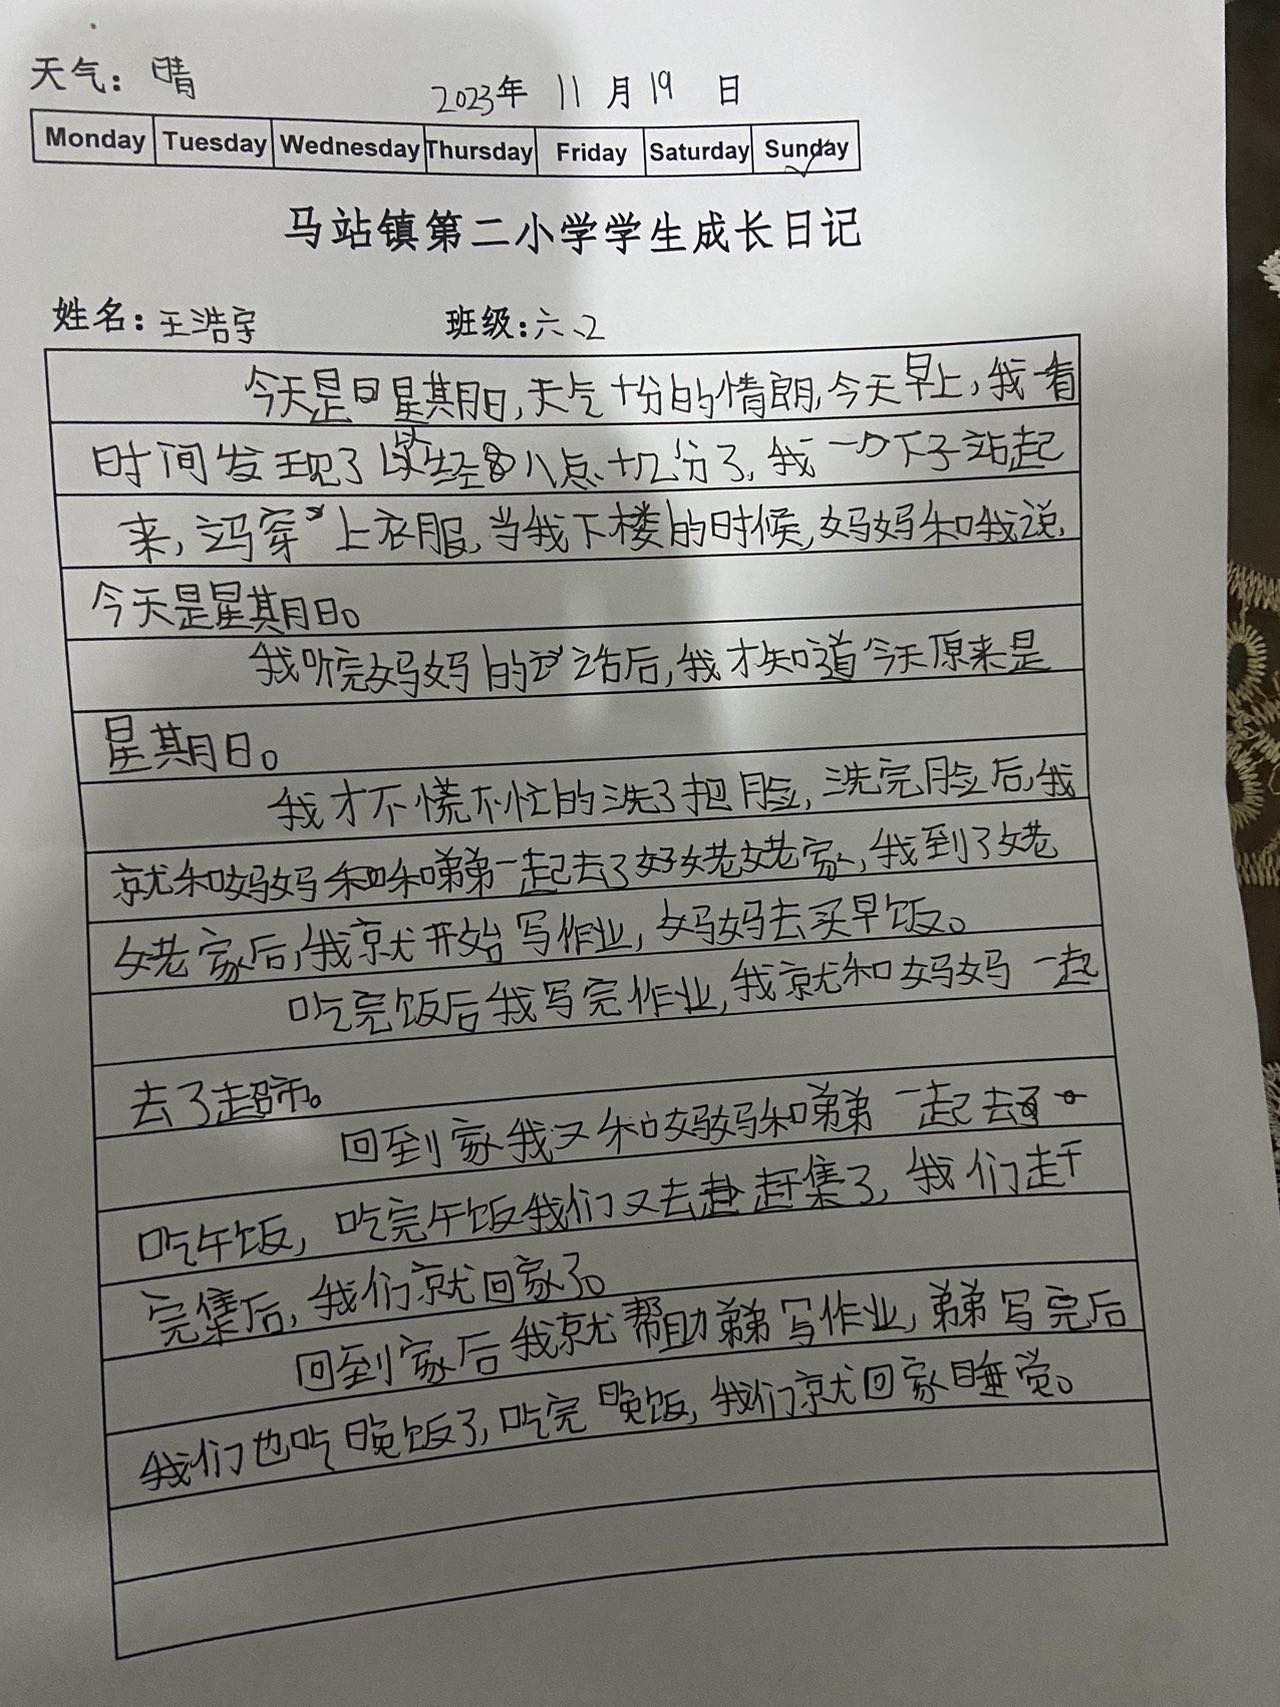 天气：晴
2023年 11月19日
Monday Tuesday Wednesday Thursday Friday Saturday Sunday
马站镇第二小学学生成长日记
姓名：王浩宇 班级：六、2
今天是星期日，天气十分的情朗，今天早上，我一看
时间发现了经八点十几分了，我一下子站起
来，穿上衣服，当我下楼的时候，妈妈和我说，
今天是星期日。
我听完妈妈的话后，我才知道今天原来是
星期日。
我才不慌不忙的洗了把脸，洗完脸后，我
就和妈妈和弟弟一起去了姥姥家，我到了姥
姥家后，我就开始写作业，妈妈去买早饭。
吃完饭后我写完作业，我就和妈妈一起
去了超市。
回到家我又和妈妈和弟弟一起去
吃午饭，吃完午饭我们又去赶集了，我们赶
完集后，我们就回家了。
回到家后我就帮助弟弟写作业，弟弟写完后
我们也吃晚饭了，吃完晚饭，我们就回家睡觉。